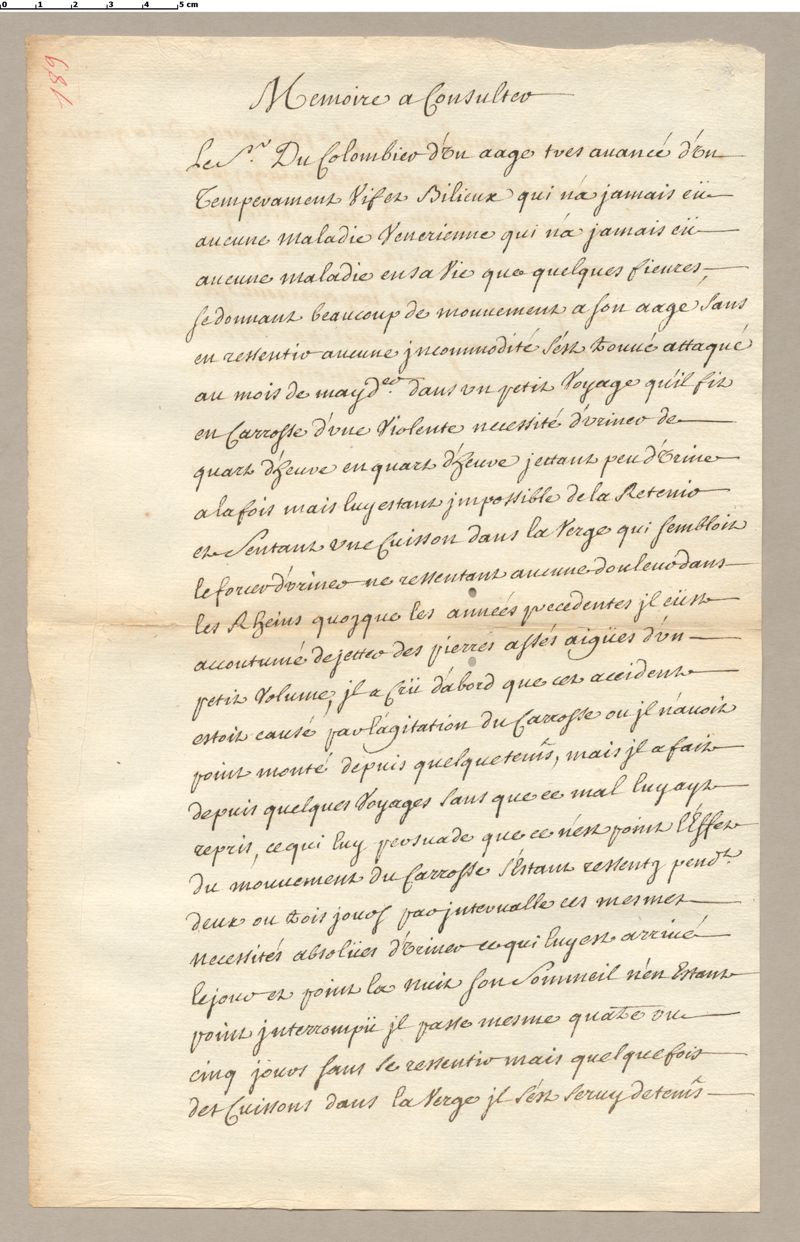 0 1 2 3 4 5 cm
189
Memoire a Consulter
Le Sr. Du Colombier d'un aage tres auancé d'un
Temperament Vif et Bilieux qui n'a jamais eü
aucune maladie Venerienne qui n'a jamais eü
aucune maladie en sa Vie que quelques fieures
se donnant beaucoup de mouuement a son aage sans
en ressentir aucune jncommodité s'est trouué attaqué
au mois de may der. dans un petit Voyage qu'il fit
en Carrosse d'une Violente necessité d'vriner de
quart d'heure en quart d'heure jettant peu d'Vrine
a la fois mais luy estant jmpossible de la Retenir
et Sentant vne Cuisson dans la Verge qui sembloit
le forcer d'vriner ne ressentant aucune douleur dans
les Rheins quoyque les années precedentes jl eüst
accoutumé de jetter des pierres assés aigües d'un
petit Volume, jl a Crü d'abord que cet accident
estoit causé par l'agitation du Carrosse ou jl n'auoit
point monté depuis quelque tems, mais jl a fait
depuis quelques Voyages sans que ce mal luy ayt
repris, ce qui luy persuade que ce n'est point l'Effet
du mouuement du Carrosse s'Estant ressenty pendt.
deux ou trois jours par jnterualle ces mesmes
necessités absolües d'Vriner ce qui luy est arriué
le jour et point la nuit son Sommeil n'en Estant
point jnterrompü jl passe mesme quatre ou
cinq jours sans se ressentir mais quelquefois
des Cuissons dans la Verge jl s'est seruy de tems